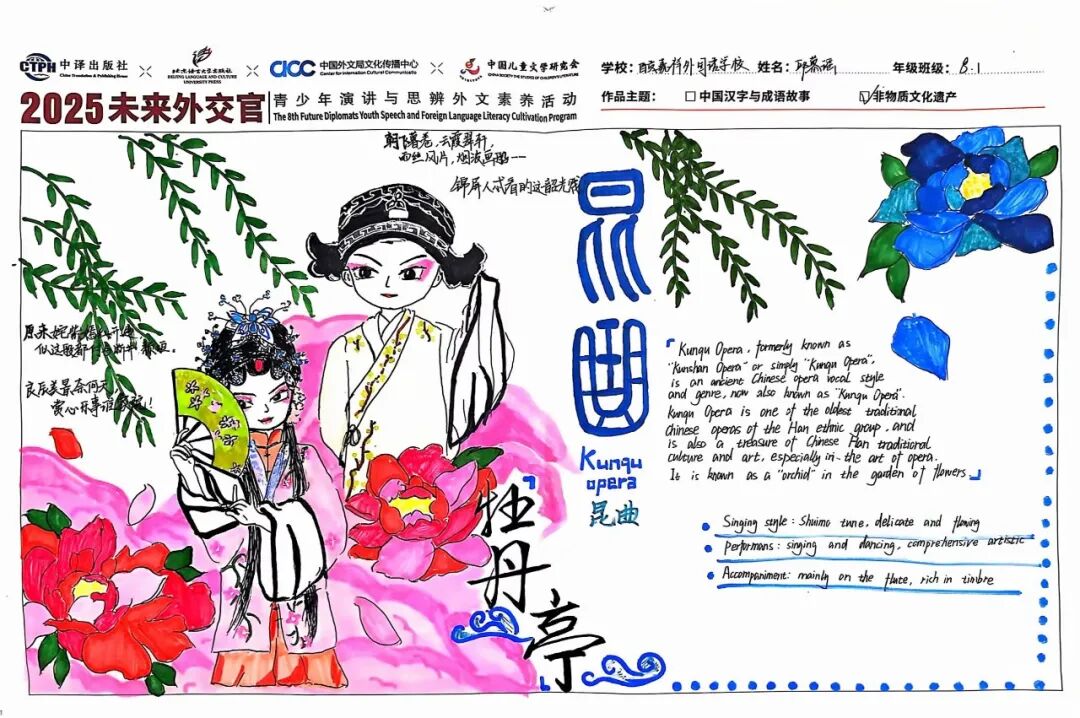 CTPH 中译出版社
China Translation & Publishing House
北京语言大学出版社
BEIJING LANGUAGE AND CULTURE
UNIVERSITY PRESS
中国外文局文化传播中心
Center for International Cultural Communicatio
中国儿童文学研究会
CHINA SOCIETY THE STUDIES OF CHILDREN'S LITERATURE
学校: 外国语学校 姓名: 年级班级: 8.1
2025未来外交官
青少年演讲与思辨外文素养活动
The 8th Future Diplomats Youth Speech and Foreign Language Literacy Cultivation Program
作品主题: □ 中国汉字与成语故事 ☑ 非物质文化遗产
朝飞暮卷,云霞翠轩,
雨丝风片,烟波画船——
锦屏人忒看的这韶光贱
原来姹紫嫣红开遍
似这般都付与断井颓垣。
良辰美景奈何天
赏心乐事谁家院!!
昆曲
Kunqu
opera
昆曲
「牡丹亭」
「Kunqu Opera, formerly known as
"Kunshan Opera" or simply "Kunqu Opera",
is an ancient Chinese opera vocal style
and genre, now also known as "Kunqu Opera".
Kunqu Opera is one of the oldest traditional
Chinese operas of the Han ethnic group, and
is also a treasure of Chinese Han traditional
culture and art, especially in the art of opera.
It is known as a "orchid" in the garden of flowers」
Singing style: Shuimo tune, delicate and flowing
Performans: singing and dancing, comprehensive artistic
Accompaniment: mainly on the flute, rich in timbre